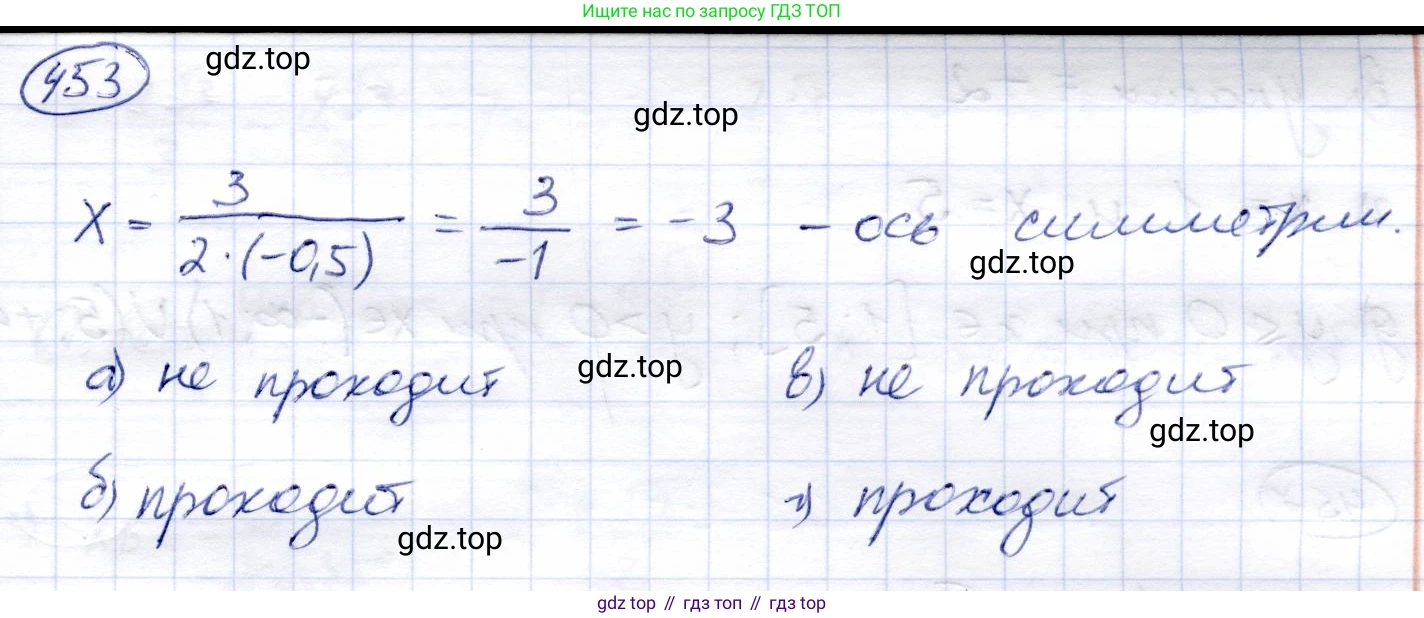 Ищите нас по запросу ГДЗ ТОП
453
gdz.top
gdz.top
X = 3 / 2·(-0,5) = 3 / -1 = -3 - ось симметрии.
gdz.top
а) не проходит
gdz.top
в) не проходит
gdz.top
б) проходит
г) проходит
gdz.top
gdz top // гдз топ // gdz top